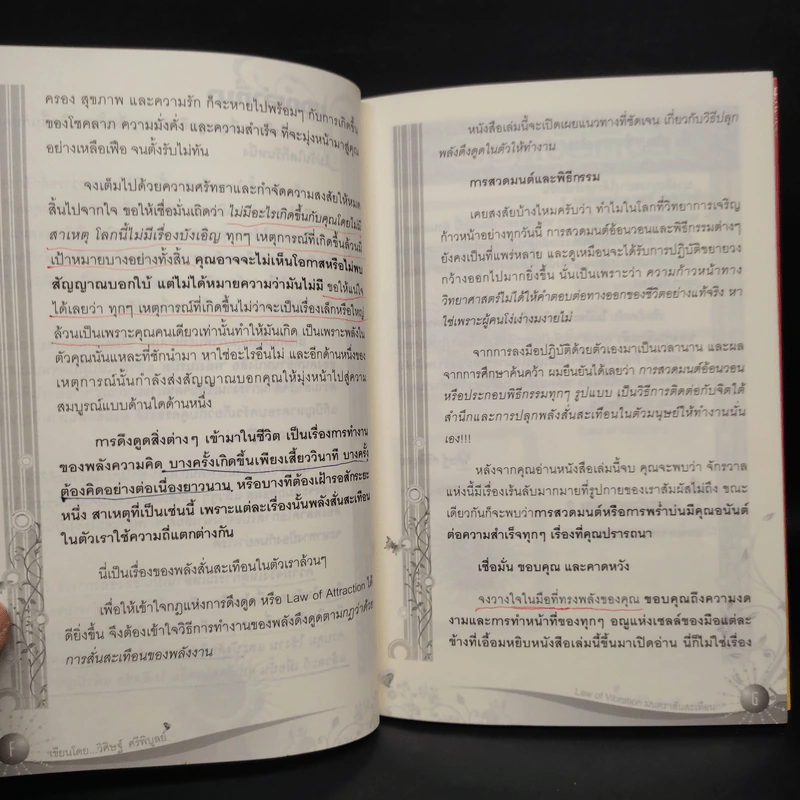 ครอง สุขภาพ และความรัก ก็จะหายไปพร้อมๆ กับการเกิดขึ้น
ของโชคลาภ ความมั่งคั่ง และความสำเร็จ ที่จะมุ่งหน้ามาสู่คุณ
อย่างเหลือเฟือ จนตั้งรับไม่ทัน
จงเต็มไปด้วยความศรัทธาและกำจัดความสงสัยให้หมด
สิ้นไปจากใจ ขอให้เชื่อมั่นเถิดว่า ไม่มีอะไรเกิดขึ้นกับคุณโดยไม่มี
สาเหตุ โลกนี้ไม่มีเรื่องบังเอิญ ทุกๆ เหตุการณ์ที่เกิดขึ้นล้วนมี
เป้าหมายบางอย่างทั้งสิ้น คุณอาจจะไม่เห็นโอกาสหรือไม่พบ
สัญญาณบอกใบ้ แต่ไม่ได้หมายความว่ามันไม่มี ขอให้แน่ใจ
ได้เลยว่า ทุกๆ เหตุการณ์ที่เกิดขึ้นไม่ว่าจะเป็นเรื่องเล็กหรือใหญ่
ล้วนเป็นเพราะคุณคนเดียวเท่านั้นทำให้มันเกิด เป็นเพราะพลังใน
ตัวคุณนั่นแหละที่ชักนำมา หาใช่อะไรอื่นไม่ และอีกด้านหนึ่งของ
เหตุการณ์นั้นกำลังส่งสัญญาณบอกคุณให้มุ่งหน้าไปสู่ความ
สมบูรณ์แบบด้านใดด้านหนึ่ง
การดึงดูดสิ่งต่างๆ เข้ามาในชีวิต เป็นเรื่องการทำงาน
ของพลังความคิด บางครั้งเกิดขึ้นเพียงเสี้ยววินาที บางครั้ง
ต้องคิดอย่างต่อเนื่องยาวนาน หรือบางทีต้องเฝ้ารอสักระยะ
หนึ่ง สาเหตุที่เป็นเช่นนี้ เพราะแต่ละเรื่องนั้นพลังสั่นสะเทือน
ในตัวเราใช้ความถี่แตกต่างกัน
นี่เป็นเรื่องของพลังสั่นสะเทือนในตัวเราล้วนๆ
เพื่อให้เข้าใจกฎแห่งการดึงดูด หรือ Law of Attraction ได้
ดียิ่งขึ้น จึงต้องเข้าใจวิธีการทำงานของพลังดึงดูดตามกฎว่าด้วย
การสั่นสะเทือนของพลังงาน
เขียนโดย...วิศิษฐ์ ศรีพิบูลย์
หนังสือเล่มนี้จะเปิดเผยแนวทางที่ชัดเจน เกี่ยวกับวิธีปลุก
พลังดึงดูดในตัวให้ทำงาน
การสวดมนต์และพิธีกรรม
เคยสงสัยบ้างไหมครับว่า ทำไมในโลกที่วิทยาการเจริญ
ก้าวหน้าอย่างทุกวันนี้ การสวดมนต์อ้อนวอนและพิธีกรรมต่างๆ
ยังคงเป็นที่แพร่หลาย และดูเหมือนจะได้รับการปฏิบัติขยายวง
กว้างออกไปมากยิ่งขึ้น นั่นเป็นเพราะว่า ความก้าวหน้าทาง
วิทยาศาสตร์ไม่ได้ให้คำตอบต่อทางออกของชีวิตอย่างแท้จริง หา
ใช่เพราะผู้คนโง่เง่างมงายไม่
จากการลงมือปฏิบัติด้วยตัวเองมาเป็นเวลานาน และผล
จากการศึกษาค้นคว้า ผมยืนยันได้เลยว่า การสวดมนต์อ้อนวอน
หรือประกอบพิธีกรรมทุกๆ รูปแบบ เป็นวิธีการติดต่อกับจิตใต้
สำนึกและการปลุกพลังสั่นสะเทือนในตัวมนุษย์ให้ทำงานนั่น
เอง!!!
หลังจากคุณอ่านหนังสือเล่มนี้จบ คุณจะพบว่า จักรวาล
แห่งนี้มีเรื่องเร้นลับมากมายที่รูปกายของเราสัมผัสไม่ถึง ขณะ
เดียวกันก็จะพบว่าการสวดมนต์หรือการพร่ำบ่นมีคุณอนันต์
ต่อความสำเร็จทุกๆ เรื่องที่คุณปรารถนา
เชื่อมั่น ขอบคุณ และคาดหวัง
จงวางใจในมือที่ทรงพลังของคุณ ขอบคุณถึงความงด
งามและการทำหน้าที่ของทุกๆ อณูแห่งเซลล์ของมือแต่ละ
ข้างที่เอื้อมหยิบหนังสือเล่มนี้ขึ้นมาเปิดอ่าน นี่ก็ไม่ใช่เรื่อง
Law of Vibration มนตราสั่นสะเทือน